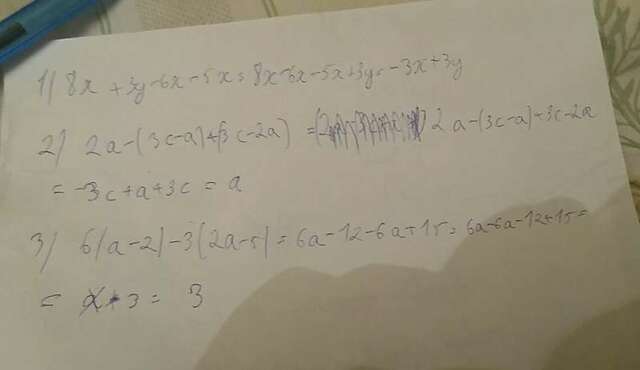 1) 8x + 3y - 6x - 5x = 8x - 6x - 5x + 3y = -3x + 3y
2) 2a - (3c - a) + (3c - 2a) = 2a - (3c - a) + 3c - 2a
= -3c + a + 3c = a
3) 6(a - 2) - 3(2a - 5) = 6a - 12 - 6a + 15 = 6a - 6a - 12 + 15 =
= 3 = 3